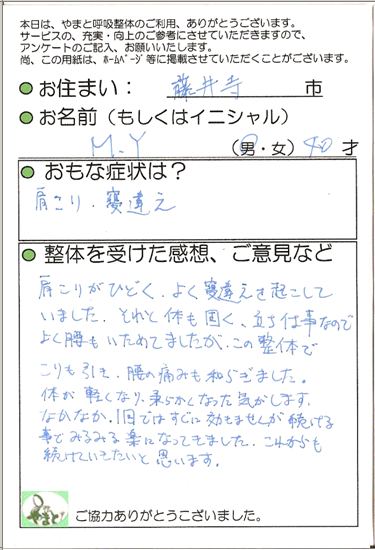 本日は、やまと呼吸整体のご利用、ありがとうございます。
サービスの、充実・向上のご参考にさせていただきますので、
アンケートのご記入、お願いいたします。
尚、この用紙は、ﾎｰﾑﾍﾟｰｼﾞ等に掲載させていただくことがございます。
お住まい： 藤井寺 市
お名前（もしくはイニシャル）
M.Y （男・女） 40 才
おもな症状は？
肩こり．寝違え
整体を受けた感想、ご意見など
肩こりがひどく、よく寝違えを起こして
いました．それと体も固く、立ち仕事なので
よく腰もいためてましたが、この整体で
こりも引き、腰の痛みも和らぎました。
体が軽くなり、柔らかくなった気がします．
なかなか、1回ではすぐに効きませんが続ける
事でみるみる楽になってきました．これからも
続けていきたいと思います．
やまと
ご協力ありがとうこざいました。